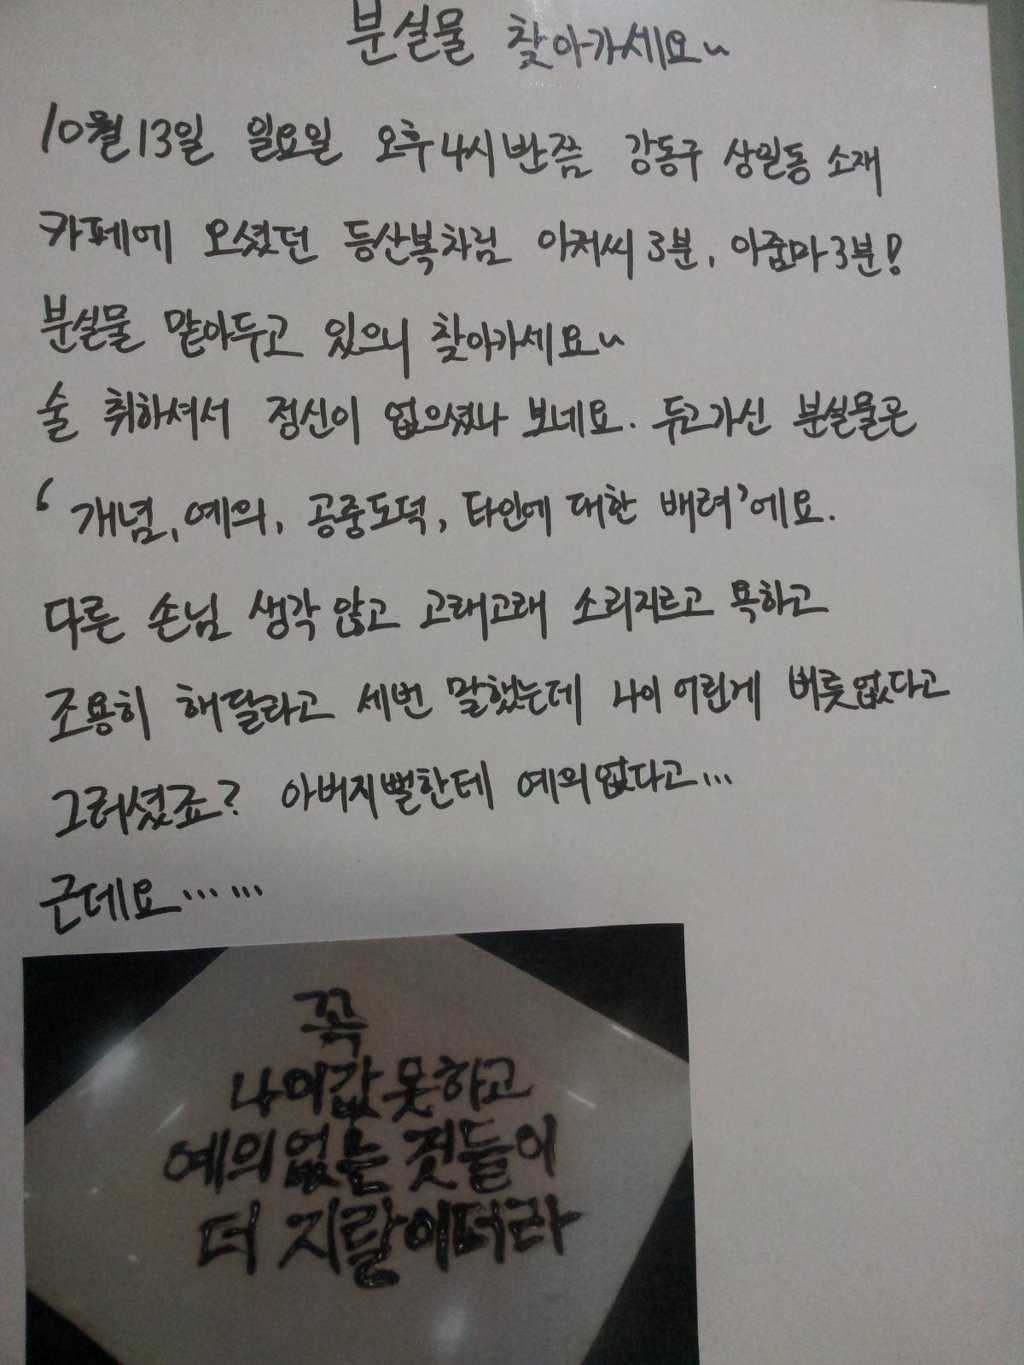 분실물 찾아가세요~
10월 13일 일요일 오후 4시 반쯤 강동구 상일동 소재
카페에 오셨던 등산복차림 아저씨 3분, 아줌마 3분!
분실물 맡아두고 있으니 찾아가세요~
술 취하셔서 정신이 없으셨나 보네요. 두고가신 분실물은
'개념, 예의, 공중도덕, 타인에 대한 배려'에요.
다른 손님 생각 않고 고래고래 소리지르고 욕하고
조용히 해달라고 세번 말했는데 나이 어린게 버릇없다고
그러셨죠? 아버지뻘한테 예의없다고...
근데요......
꼭
나이값 못하고
예의없는 것들이
더 지랄이더라